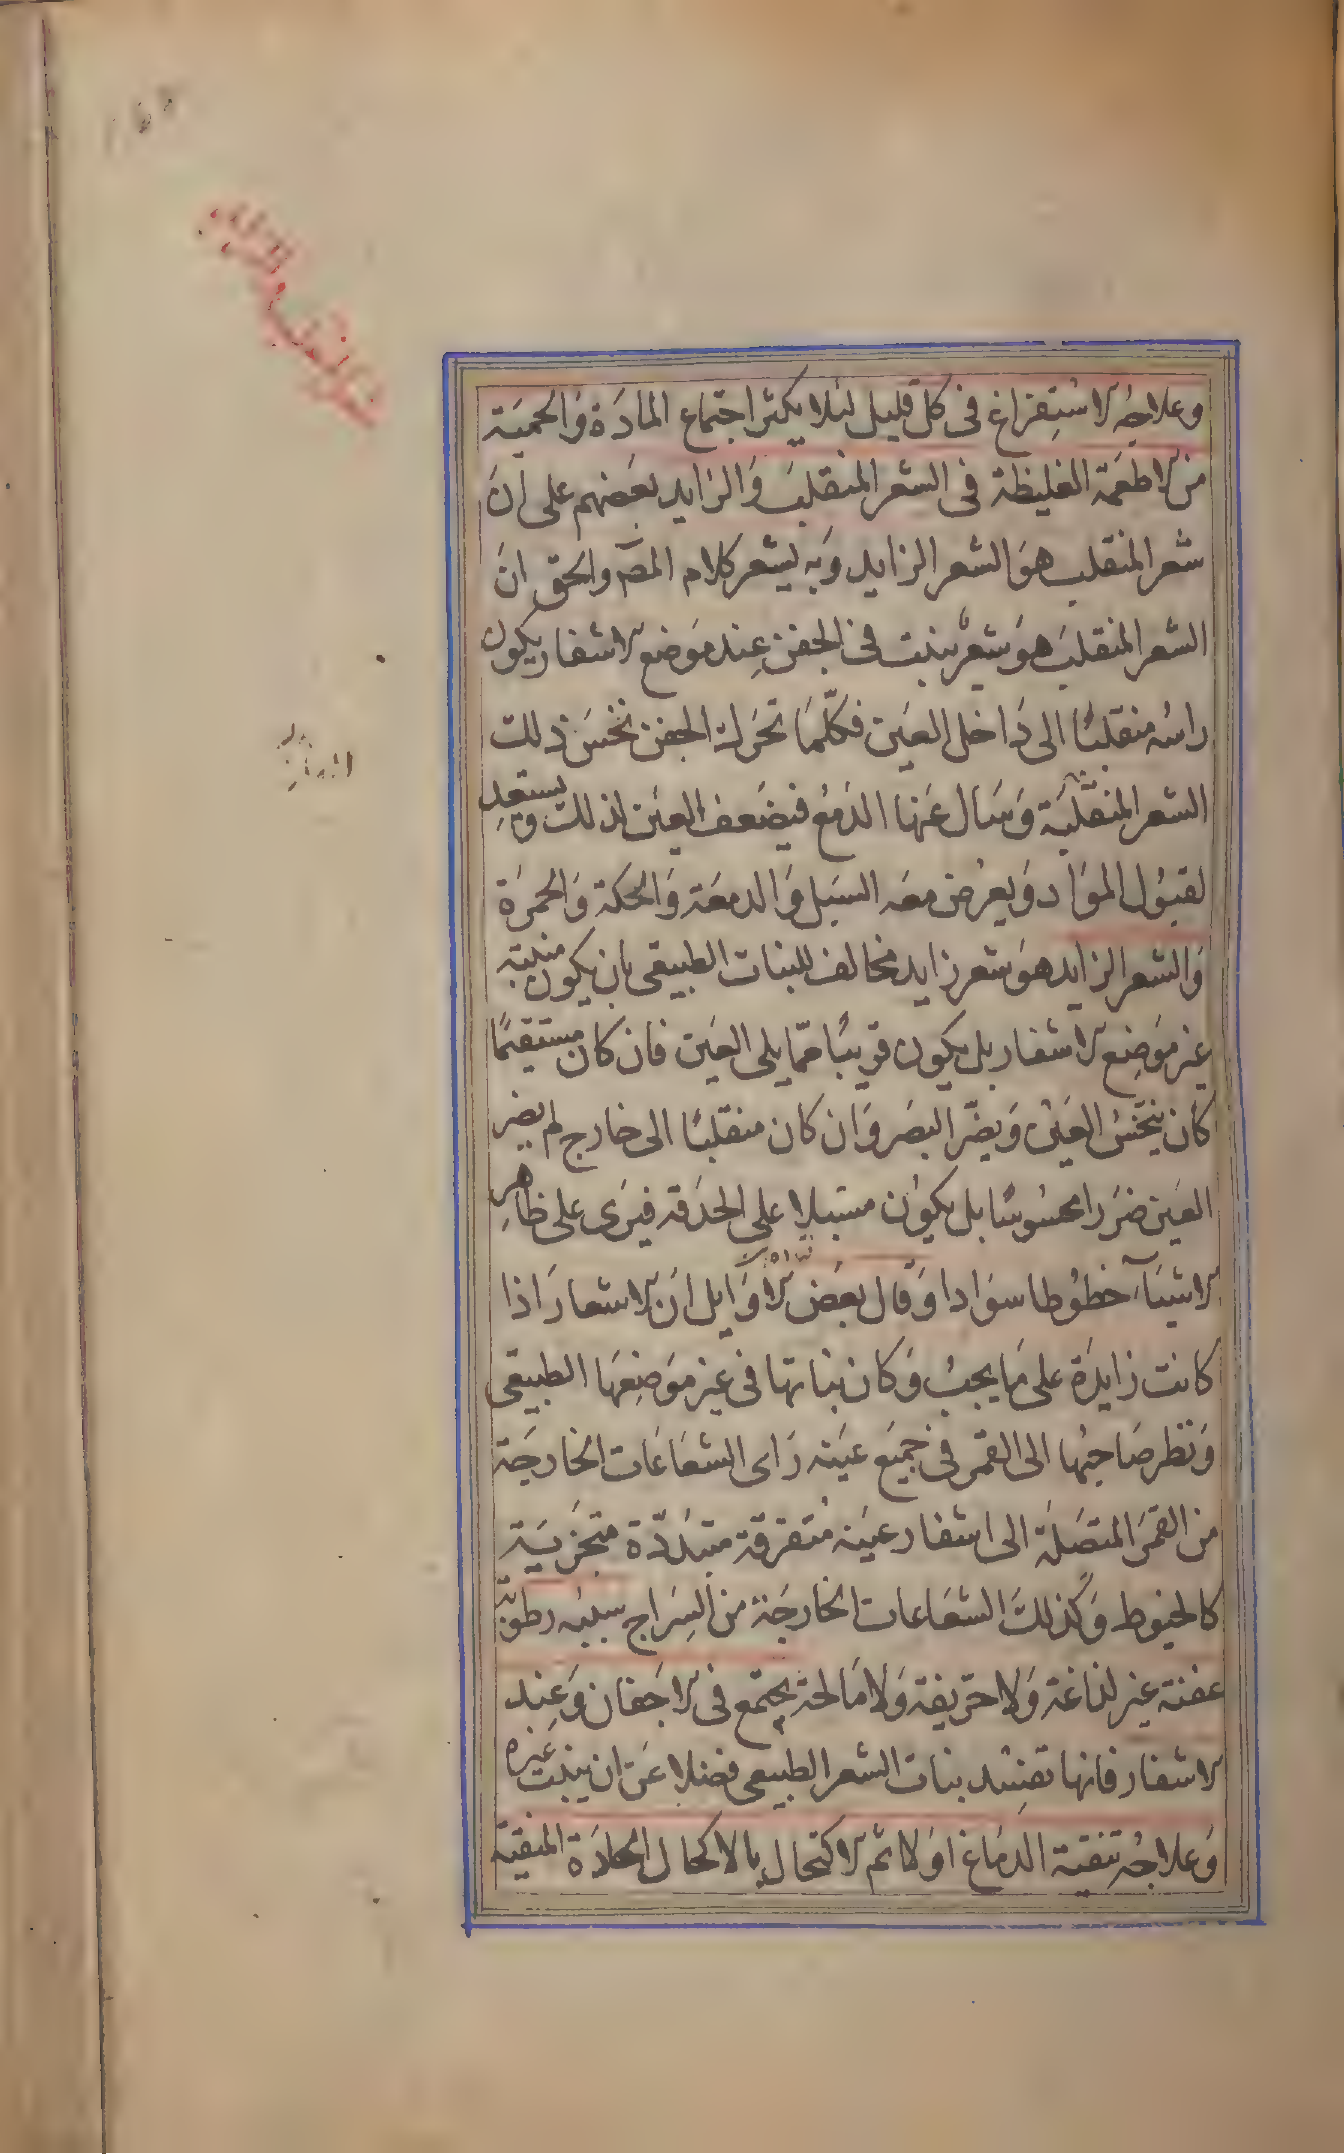 وعلاجه الاستفراغ فى كل قليل لئلا يكثر اجتماع المادة والحمية
من الاطعمة الغليظة فى الشعر المنقلب والزايد بعضهم على ان
شعر المنقلب هو الشعر الزايد وبه يشعر كلام المصـ والحق ان
الشعر المنقلب هو شعر ينبت فى الجفن عند موضع الاشفار يكون
راسه منقلبا الى داخل العين فكلما تحرك الجفن نخس ذلك
الشعر المنقلبة وسال عنها الدمع فيضعف العين لذلك ويستعد
لقبول المواد ويعرض معه السبل والدمعة والحكة والحمرة
والشعر الزايد هو شعر زايد مخالف للنبات الطبيعى بان يكون منبته
غير موضع الاشفار بل يكون قريبا مما يلى العين فان كان مستقيما
كان ينخس العين ويضر البصر وان كان منقلبا الى خارج لم يضر
العين ضررا محسوسا بل يكون مسبلا على الحدقة فيرى على ظاهر
الاشياء خطوطا سوادا وقال بعض الاوايل ان الاشعار اذا
كانت زايدة على ما يجب وكان نباتها فى غير موضعها الطبيعى
ونظر صاحبها الى القمر فى جميع عينه راى الشعاعات الخارجة
من القمر المتصلة الى اشفار عينه متفرقة متبددة متجزية
كالخيوط وكذلك الشعاعات الخارجة من السراج سببه رطوبة
عفنة غير لذاغة ولا حريفة ولا مالحة يجتمع فى الاجفان وعند
الاشفار فانها تفسد بنات الشعر الطبيعى فضلا عن ان ينبت غيره
وعلاجه تنقية الدماغ اولا ثم الاكتحال بالاكحال الحادة المنقية